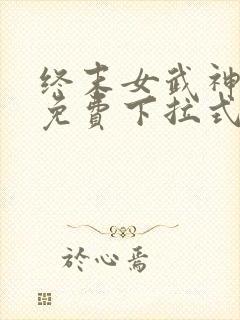 终末女武神
免費下拉式
於心焉